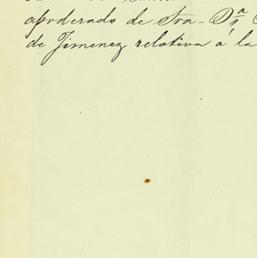 apoderado de Sra. Dª
de Jimenez relativa á la